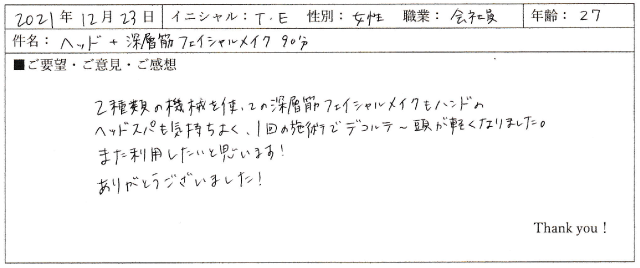 2021年 12月 23日 イニシャル：T.E 性別：女性 職業：会社員 年齢：27
件名：ヘッド + 深層筋フェイシャルメイク 90分
■ご要望・ご意見・ご感想
2種類の機械を使っての深層筋フェイシャルメイクもハンドの
ヘッドスパも気持ちよく、1回の施術でデコルテ〜頭が軽くなりました。
また利用したいと思います！
ありがとうございました！
Thank you！